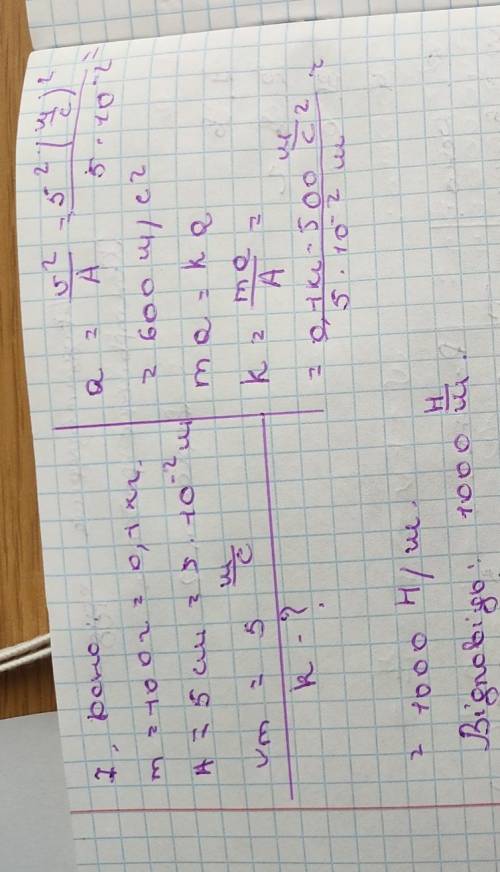 7. Дано:
m = 100 г = 0,1 кг.
A = 5 см = 5 · 10⁻² м
vm = 5 м/с
k - ?
a = v²/A = 5² (м/с)² / 5 · 10⁻² =
= 600 м/с²
ma = kA
k = ma/A =
= 0,1 кг · 500 м/с² / 5 · 10⁻² м =
= 1000 Н/м.
Відповідь: 1000 Н/м.